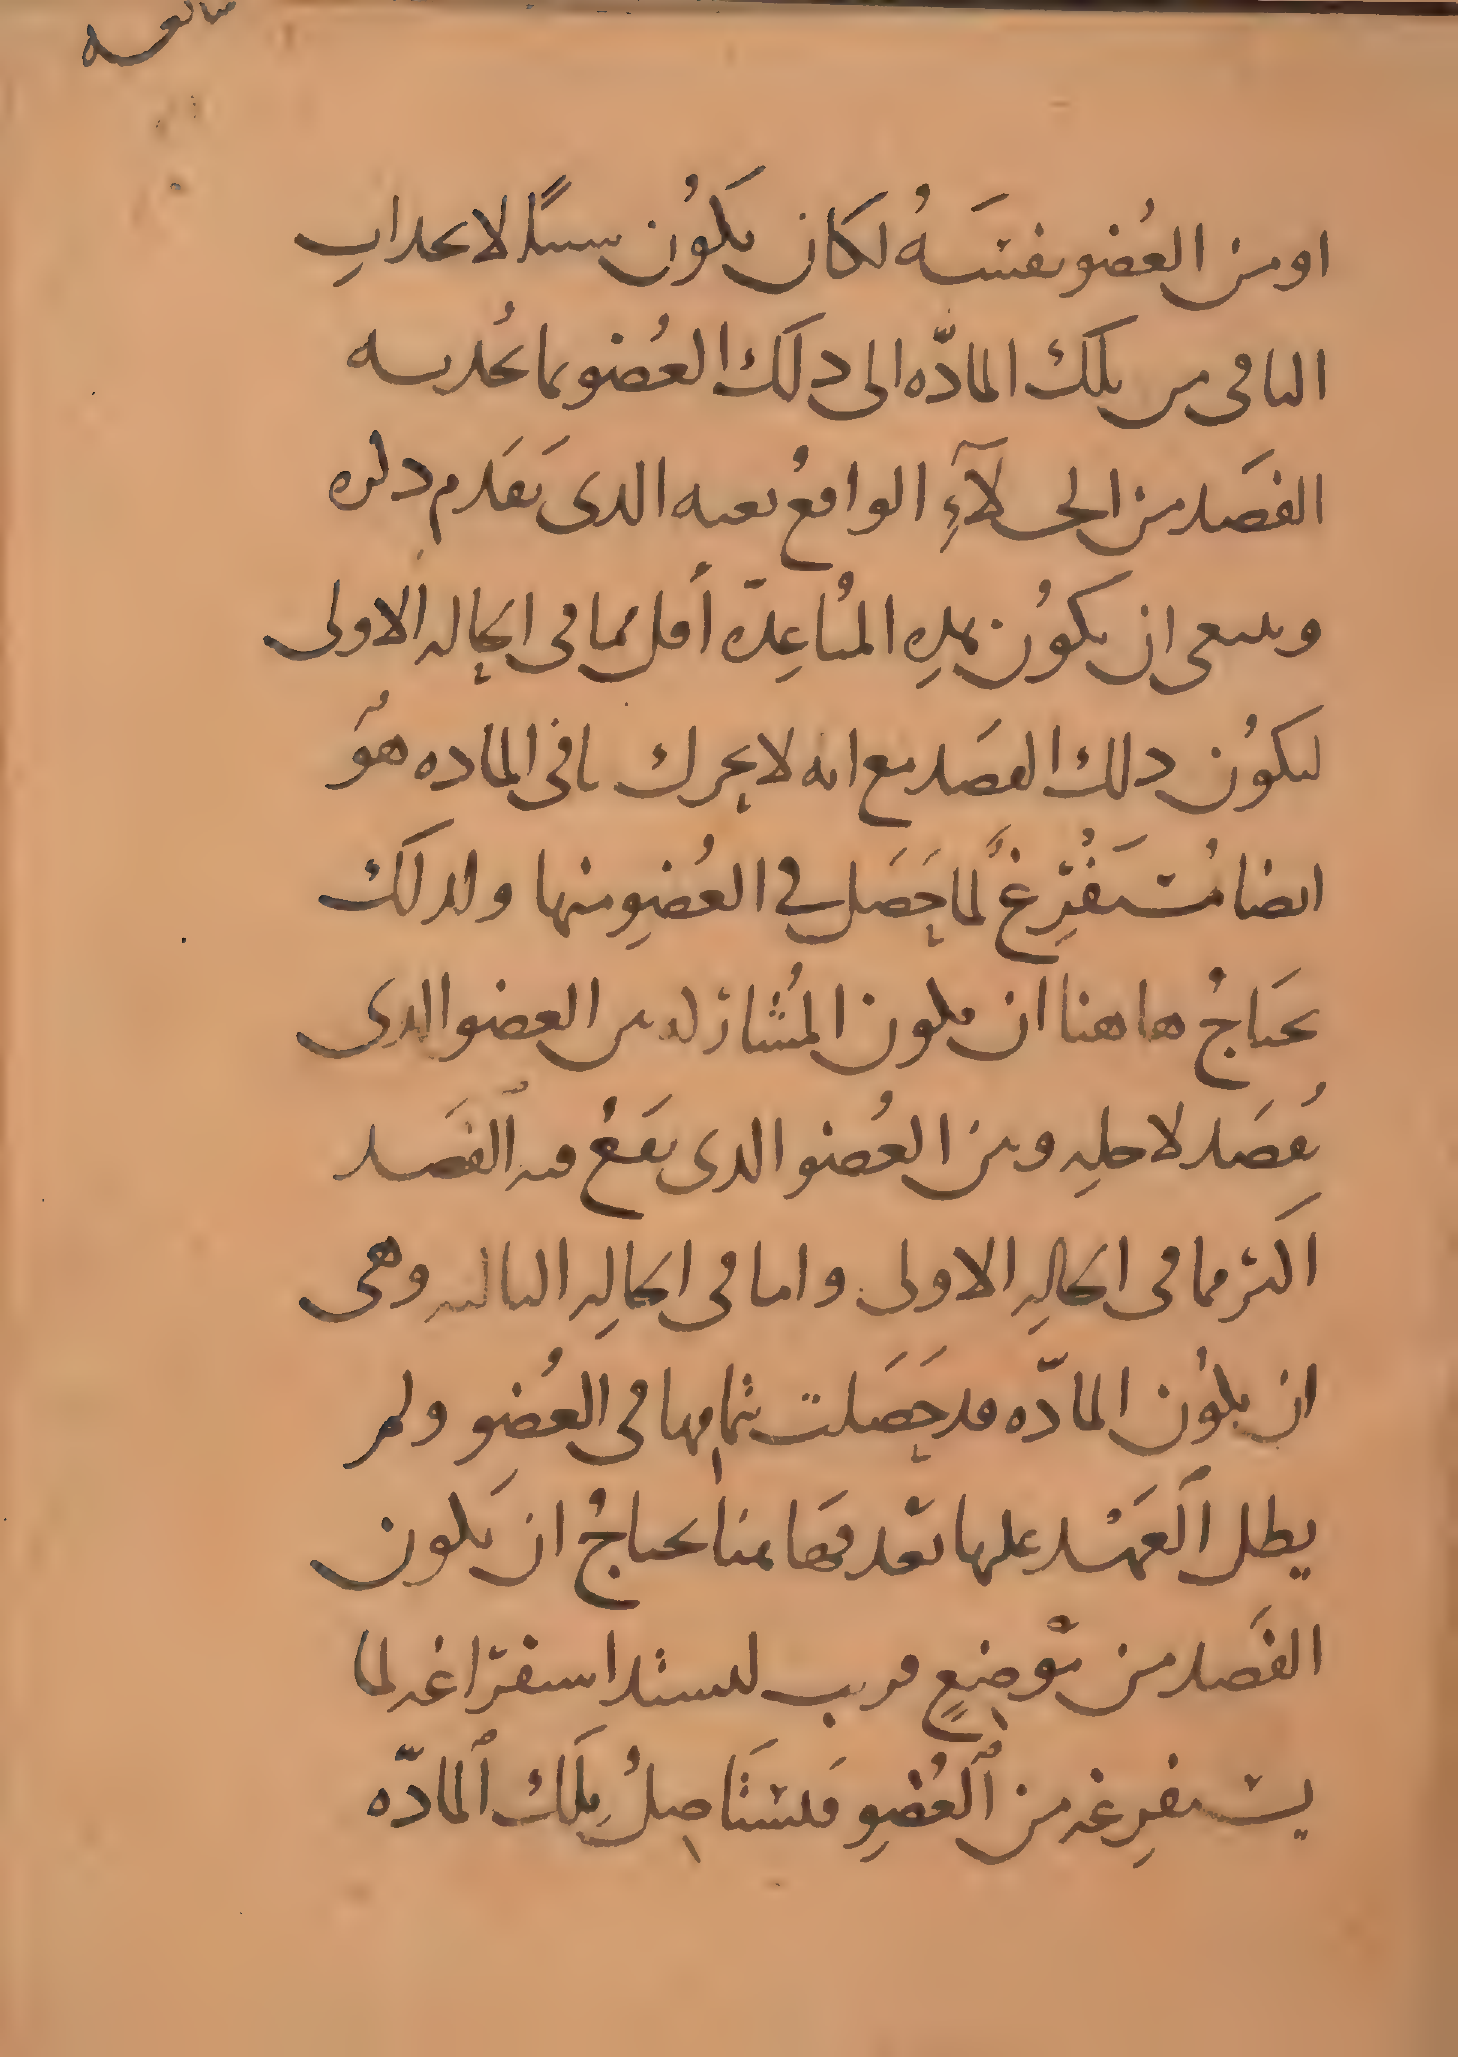 او من العُضو نفسَهُ لكان يكَوُن سببًا لانجذابِ
الباقى من تلك المادّه الى ذلكَ العُضو بما يُحدثه
الفصَد من الخلآءِ الواقعُ بعبه الذى تقَدم ذكره
وينبغى ان يكوُن هذهِ المُباعِدَّه أقل مما فى الحاله الاولى
ليكوُن ذلك الفصَد مع انه لا يحرك باقى الماده هوُ
ايضا مُستَفُرِّغًا لما حَصَل فى العُضوِ منها ولذلكَ
يحَتاجُ هاهنا ان يكون المُشاركه بين العضو الذى
يُفصَد لاجلهِ وبين العُضو الذى يقَعُ فيه الفَصَد
اكَثر مما فى الحالهِ الاولى واما فى الحالهِ الثالثه وهى
ان يكوُن المادّه قد حَصَلت بتمامِها فى العُضو ولم
يطل العَهْد عليها بَعْد فهَاهنا يحتاجُ ان يَكون
الفَصَد من مَوْضِعٍ قريب ليشتد استفراغه لما
يستفرِغه من العُضوِ فيسَتَاصِلُ تلَك المادّه